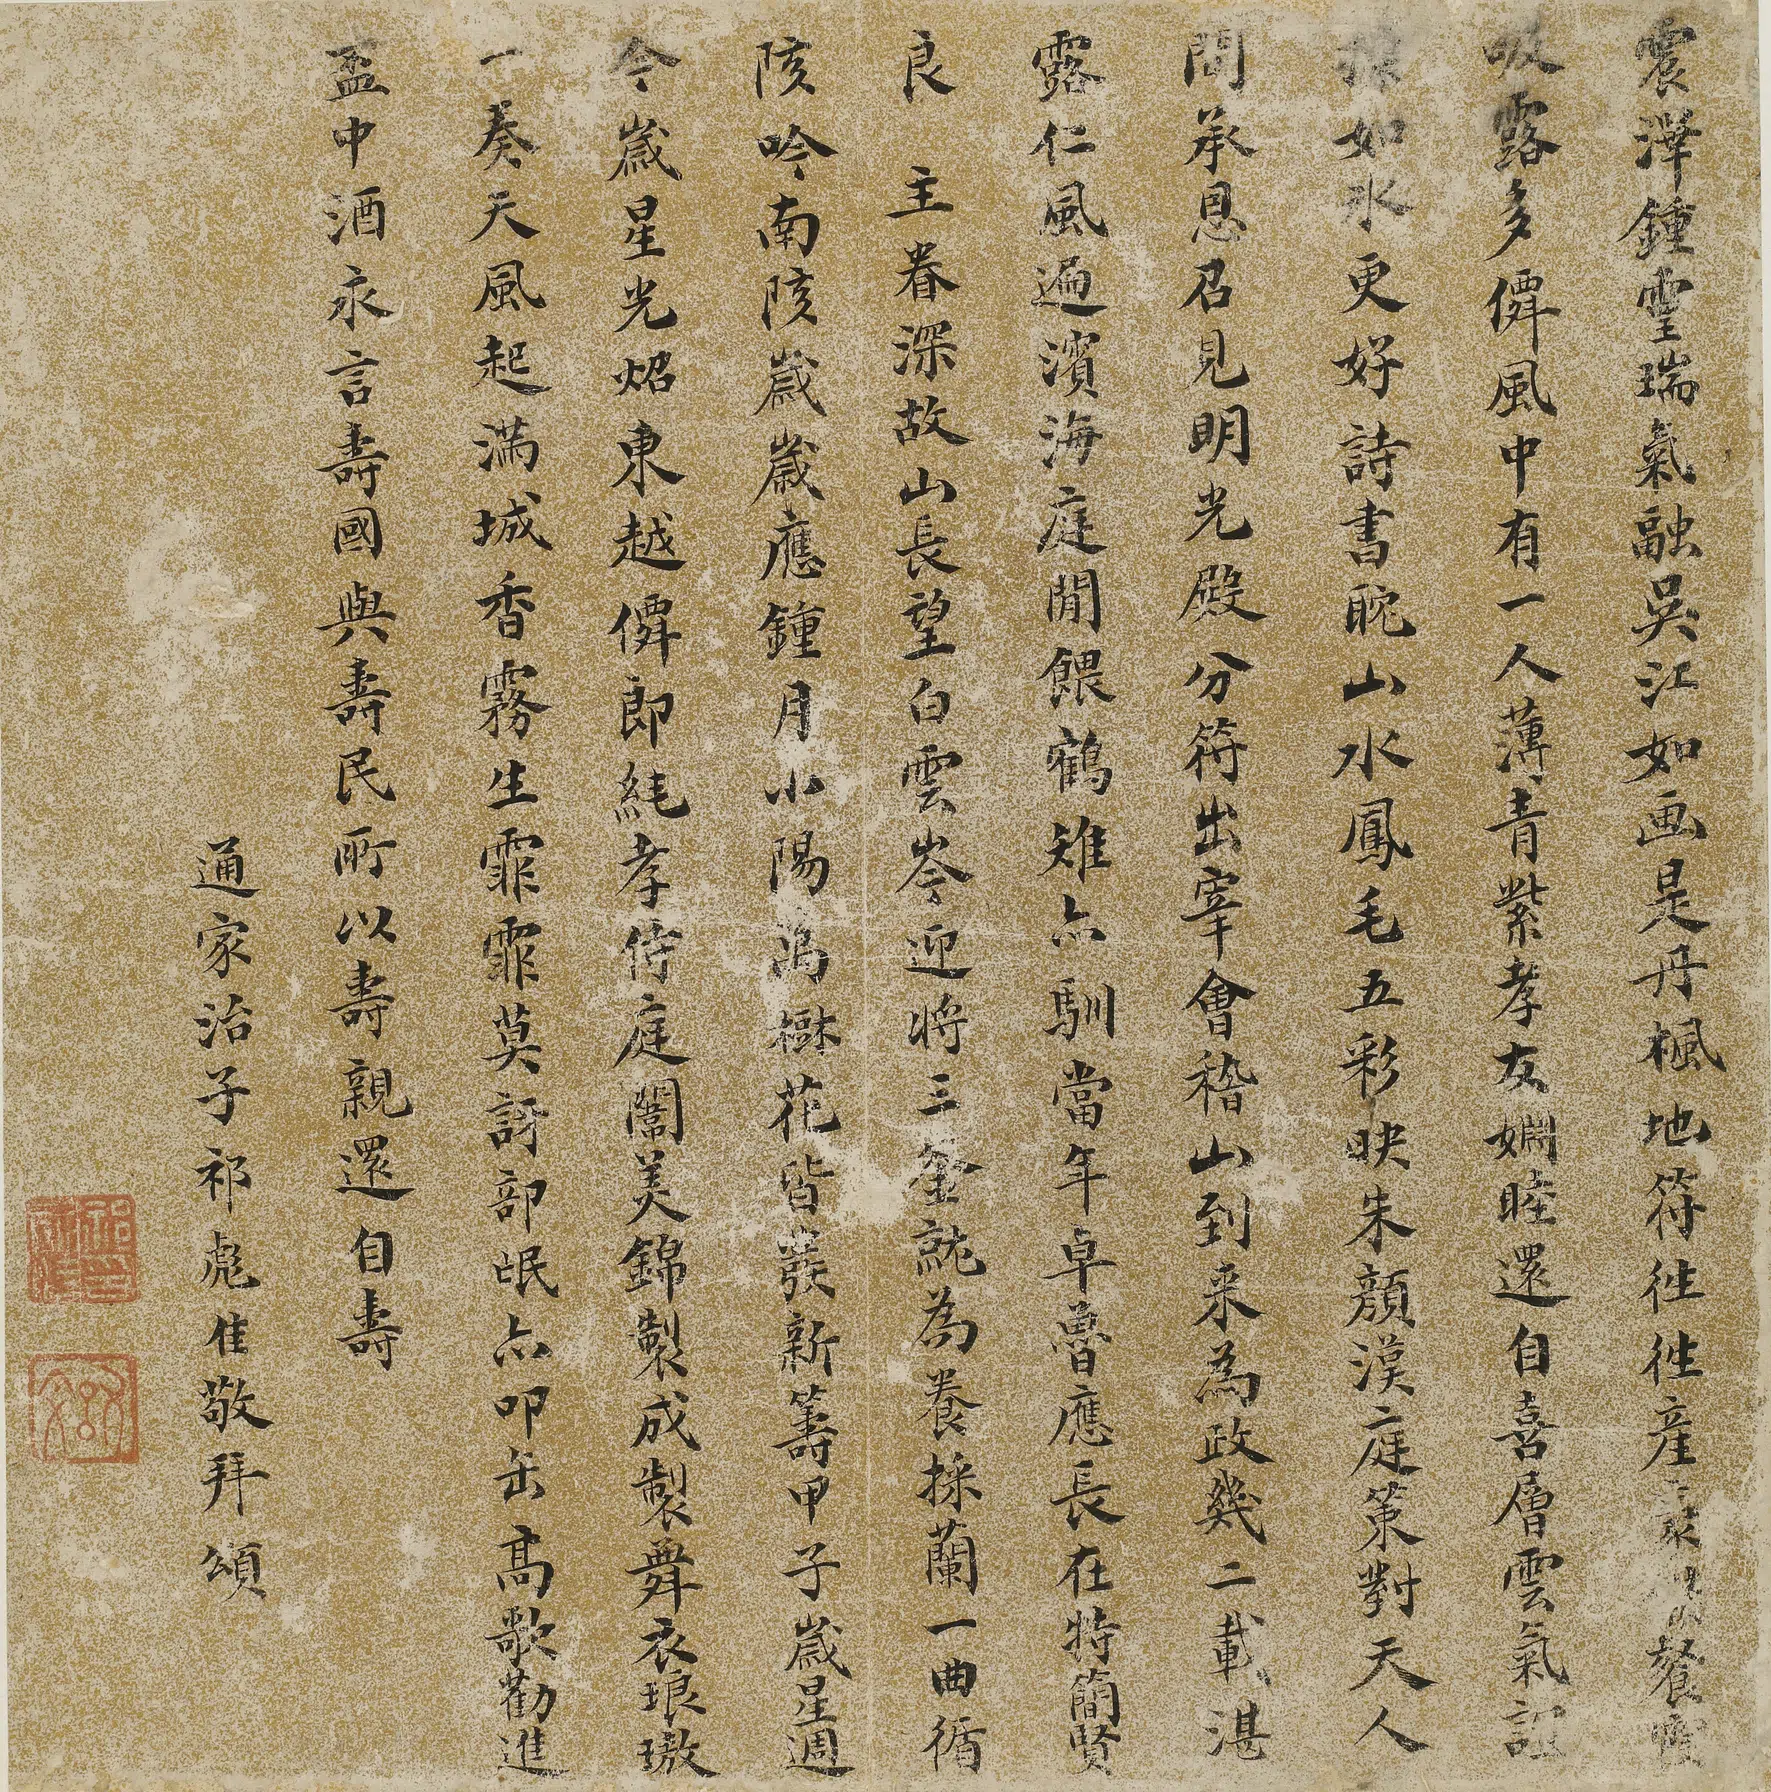 震澤鍾靈瑞氣融吳江如画是丹楓地符徃徃産異餐霞
吸露多僊風中有一人薄青紫孝友婣睦還自喜層雲氣誼
如氷更好詩書眈山水鳳毛五彩映朱顔漢庭策對天人
間承恩召見明光殿分符出宰會稽山到来為政幾二載湛
露仁風遍濱海庭閒餵鶴雉亦馴當年卓魯應長在特簡賢
良 主眷深故山長望白雲岑迎将三釜就為養採蘭一曲循
陔吟南陔歲歲應鍾月小陽萬樹花皆發新籌甲子歲星週
今歲星光炤東越僊郎純孝侍庭闈美錦製成製舞衣琅璈
一奏天風起滿城香霧生霏霏莫訝部氓亦叩缶髙歌勸進
盃中酒永言壽國與壽民所以壽親還自壽
通家治子祁彪佳敬拜頌